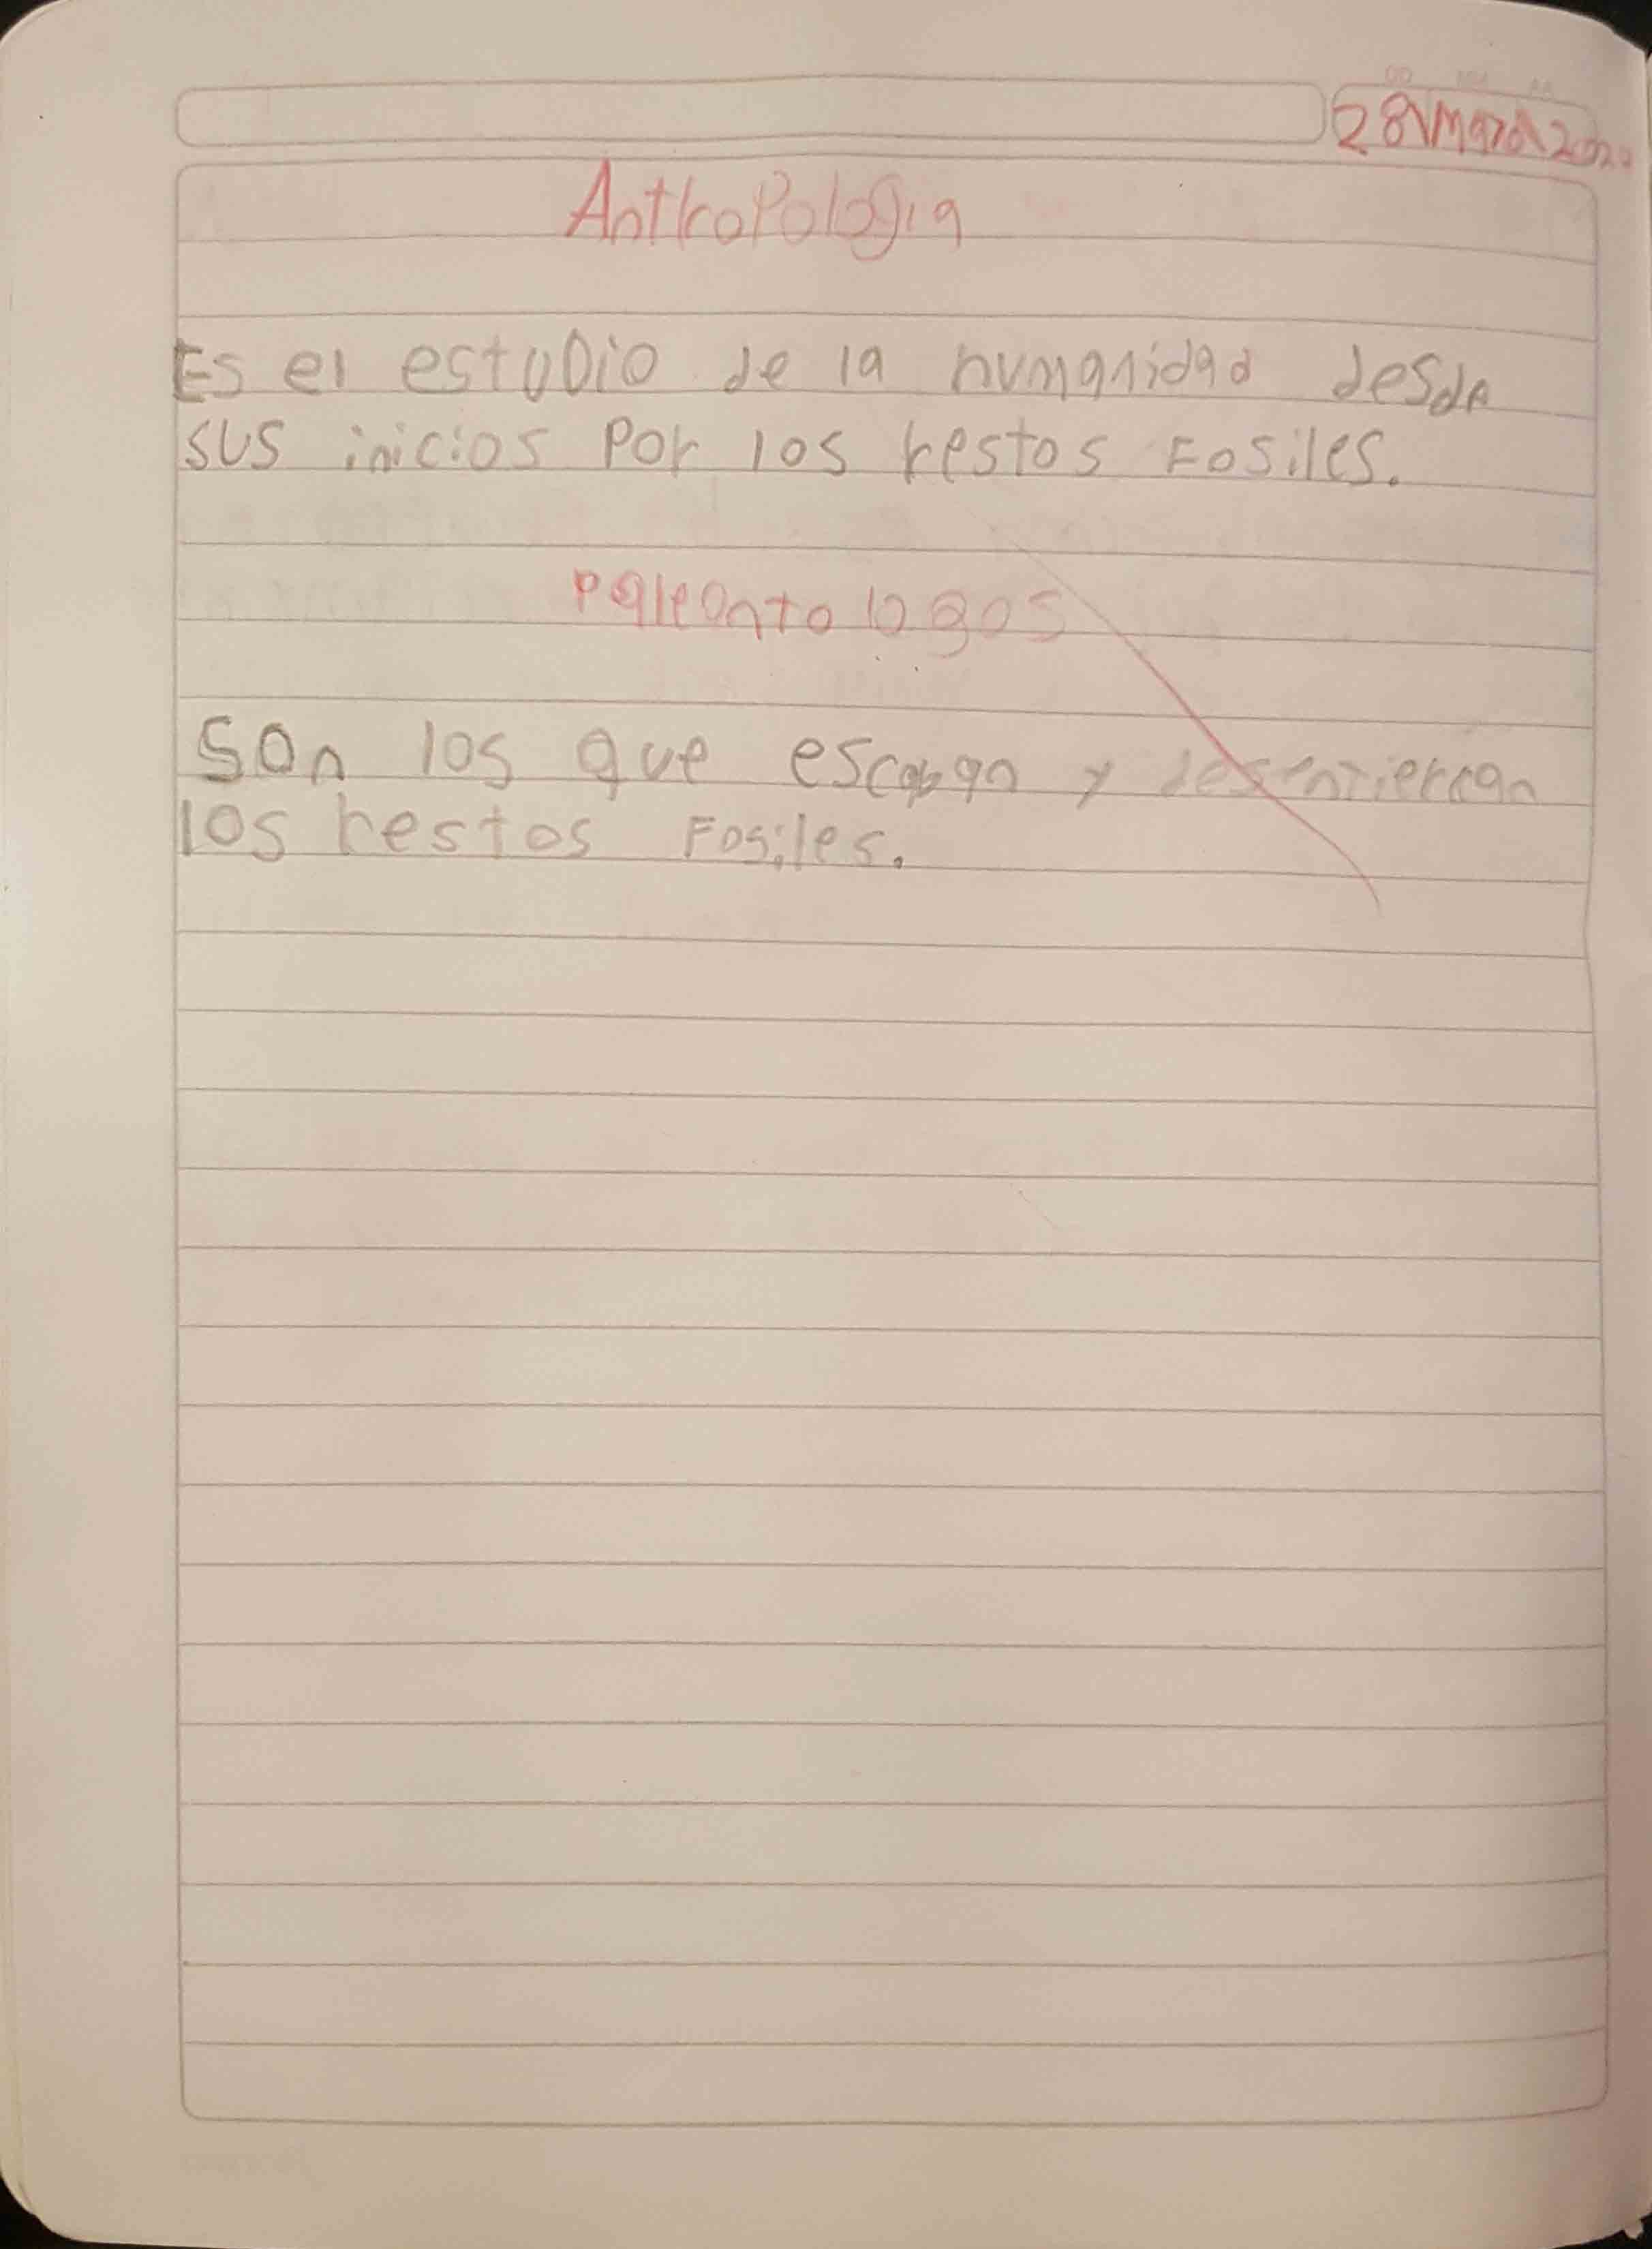 28\Marzo\2020
Antropologia
Es el estudio de la humanidad desde
sus inicios Por los restos Fosiles.
paleontologos
Son los que escaban y desentierran
los restos Fosiles.